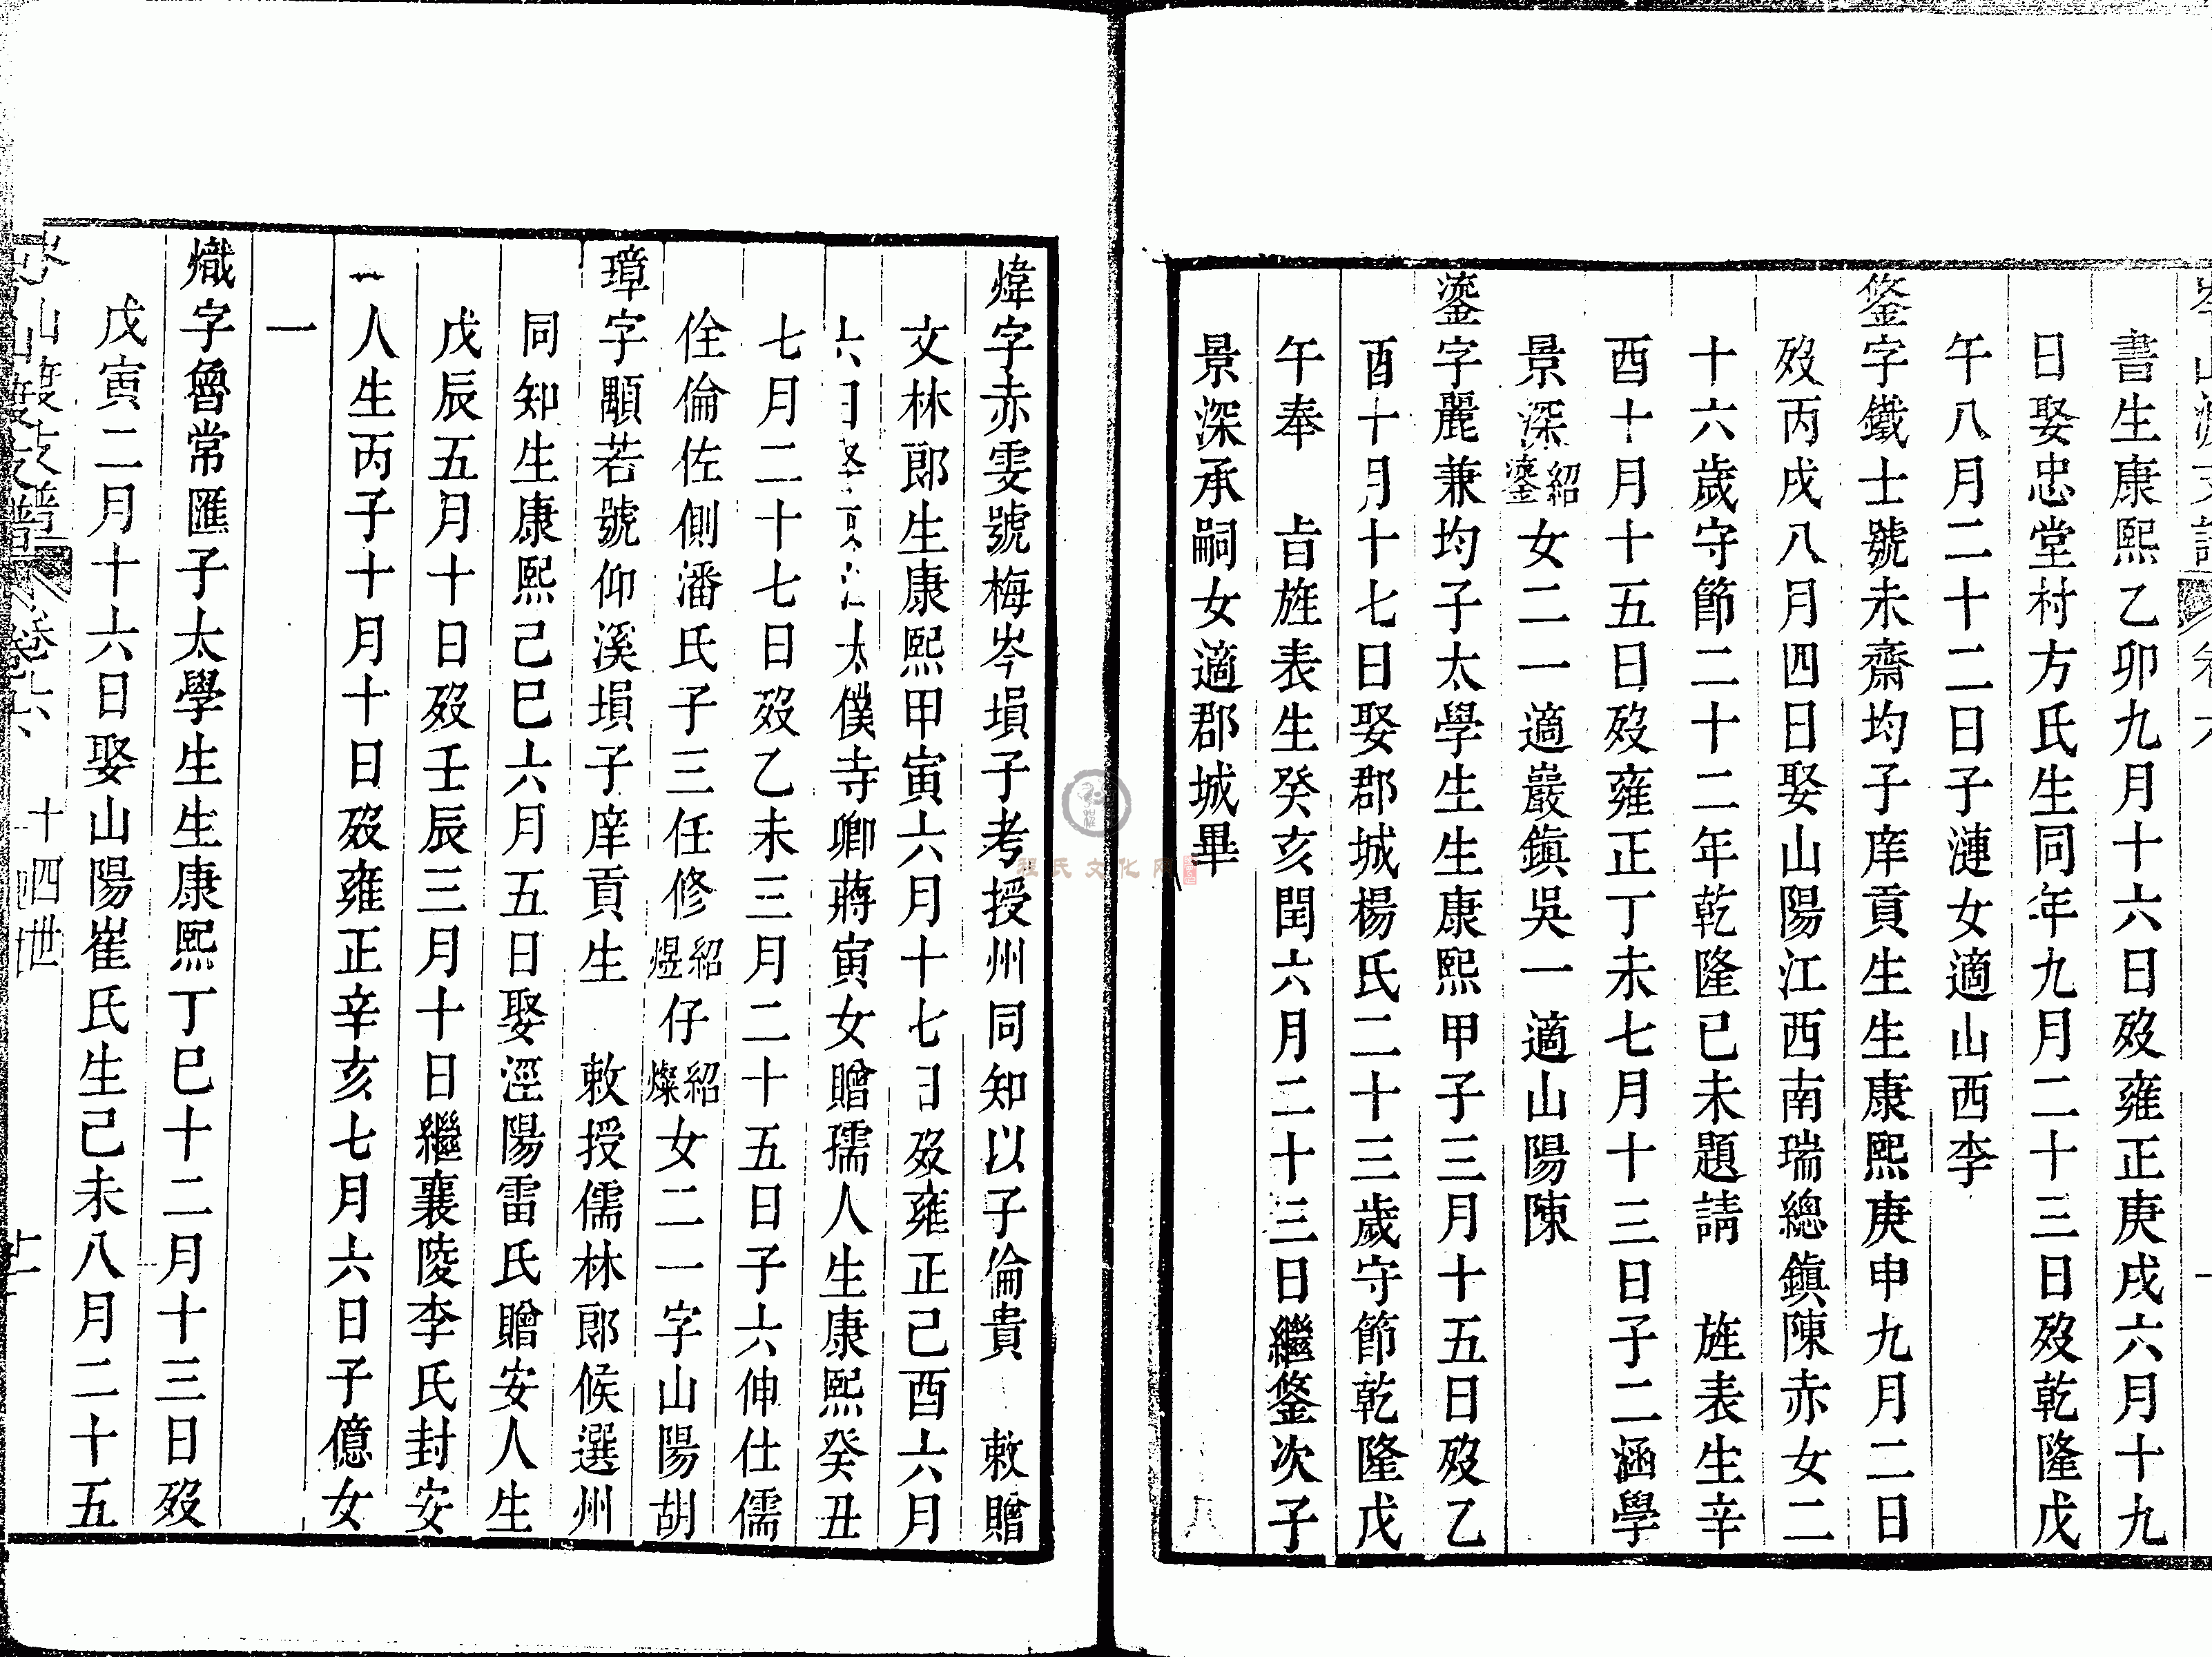 書生康熙乙卯九月十六日歿雍正庚戌六月十九
日娶忠堂村方氏生同年九月二十三日歿乾隆戊
午八月二十二日子漣女適山西李
鋚字鐵士號未齋均子庠貢生生康熙庚申九月二日
歿丙戌八月四日娶山陽江西南瑞總鎮陳赤女二
十六歲守節二十二年乾隆已未題請　旌表生辛
酉十月十五日歿雍正丁未七月十三日子二涵學
景深紹鎏女二一適巖鎮吳一適山陽陳
鎏字麗兼均子太學生生康熙甲子三月十五日歿乙
酉十月十七日娶郡城楊氏二十三歲守節乾隆戊
午奉　旨旌表生癸亥閏六月二十三日繼鋚次子
景深承嗣女適郡城畢
煒字赤雯號梅岑塤子考授州同知以子倫貴　敕贈
文林郎生康熙甲寅六月十七日歿雍正己酉六月
六日太僕寺卿蔣寅女贈孺人生康熙癸丑
七月二十七日歿乙未三月二十五日子六伸仕儒
佺倫佐側潘氏子三任修紹煜仔紹燦女二一字山陽胡
璋字顒若號仰溪塤子庠貢生　敕授儒林郎候選州
同知生康熙己巳六月五日娶涇陽雷氏贈安人生
戊辰五月十日歿壬辰三月十日繼襄陵李氏封安
人生丙子十月十日歿雍正辛亥七月六日子億女
一
熾字魯常匯子太學生生康熙丁巳十二月十三日歿
戊寅二月十六日娶山陽崔氏生己未八月二十五
岑山渡支譜 卷六 十四世
程氏文化网